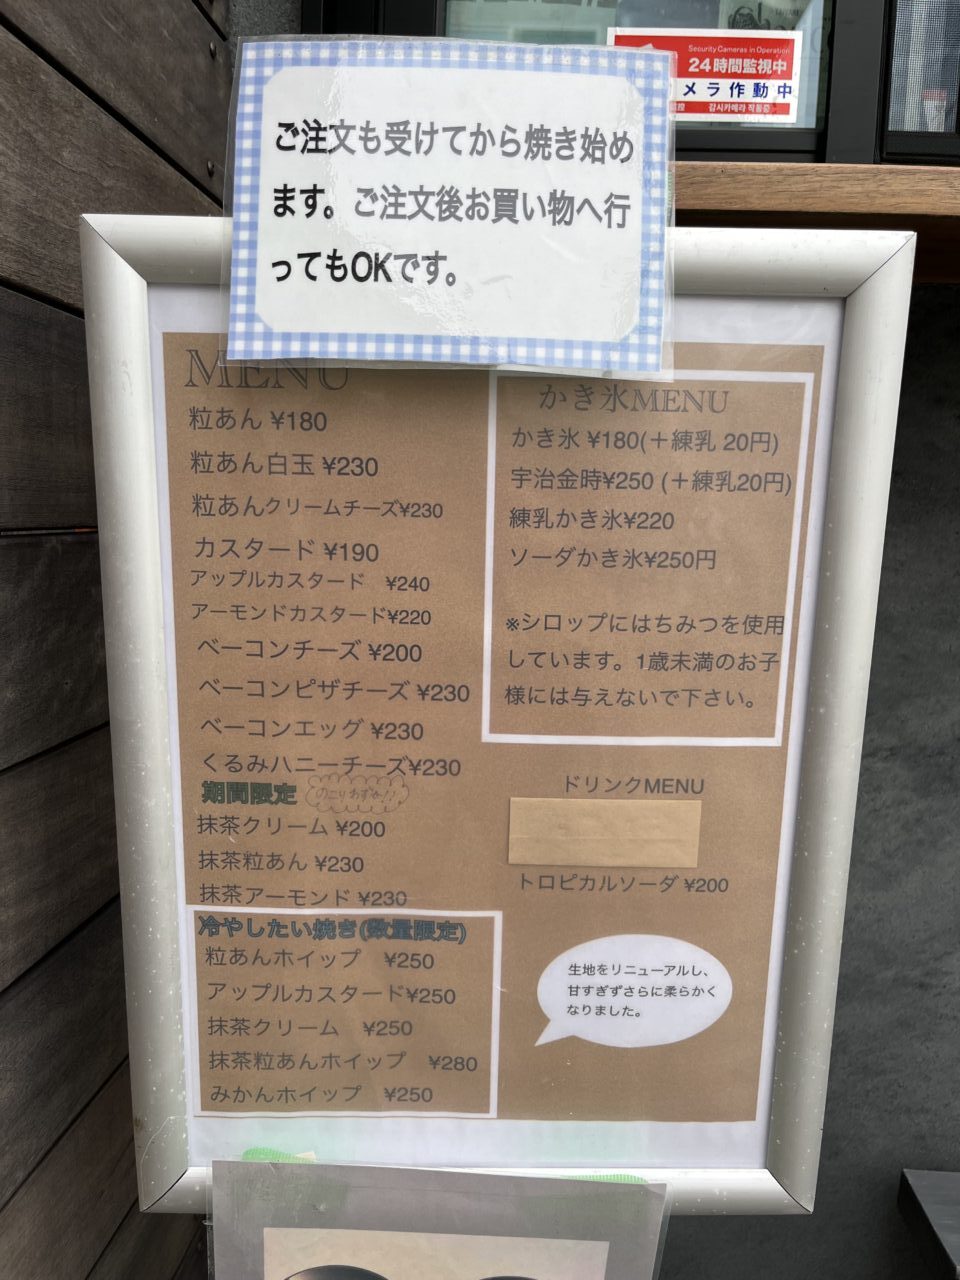 Security Cameras in Operation
24時間監視中
メラ作動中
감시카메라 작동중
ご注文も受けてから焼き始め
ます。ご注文後お買い物へ行
ってもOKです。
MENU
粒あん ¥180
粒あん白玉 ¥230
粒あんクリームチーズ¥230
カスタード ¥190
アップルカスタード ¥240
アーモンドカスタード¥220
ベーコンチーズ ¥200
ベーコンピザチーズ ¥230
ベーコンエッグ ¥230
くるみハニーチーズ¥230
期間限定 のこりわずか!!
抹茶クリーム ¥200
抹茶粒あん ¥230
抹茶アーモンド ¥230
冷やしたい焼き(数量限定)
粒あんホイップ ¥250
アップルカスタード¥250
抹茶クリーム ¥250
抹茶粒あんホイップ ¥280
みかんホイップ ¥250
かき氷MENU
かき氷 ¥180(＋練乳 20円)
宇治金時¥250 (＋練乳20円)
練乳かき氷¥220
ソーダかき氷¥250円
※シロップにはちみつを使用
しています。1歳未満のお子
様には与えないで下さい。
ドリンクMENU
トロピカルソーダ ¥200
生地をリニューアルし、
甘すぎずさらに柔らかく
なりました。